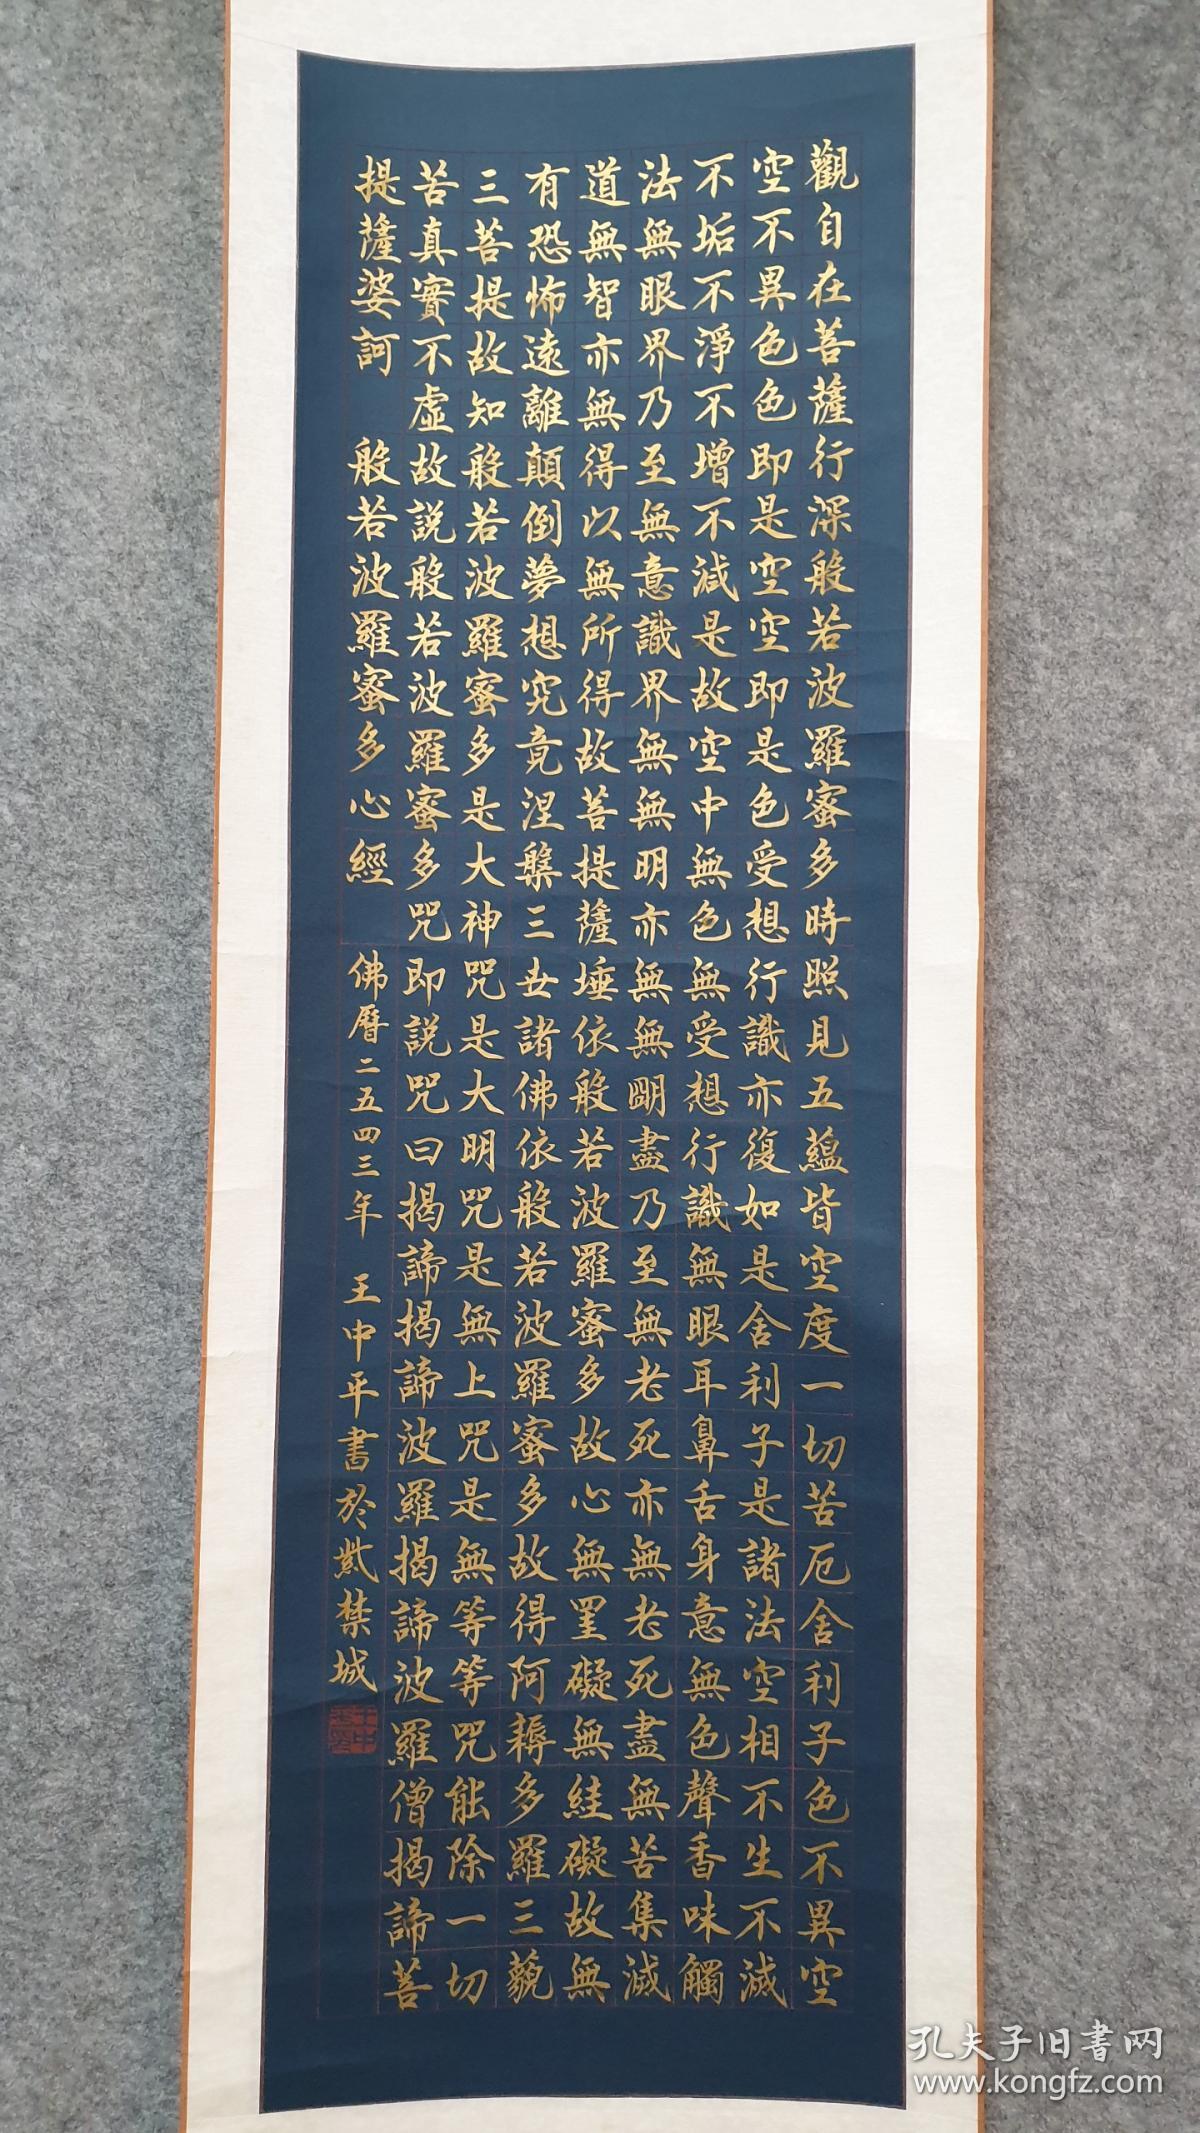 觀自在菩薩行深般若波羅蜜多時照見五蘊皆空度一切苦厄舍利子色不異空
空不異色色即是空空即是色受想行識亦復如是舍利子是諸法空相不生不滅
不垢不淨不增不減是故空中無色無受想行識無眼耳鼻舌身意無色聲香味觸
法無眼界乃至無意識界無無明亦無無朙盡乃至無老死亦無老死盡無苦集滅
道無智亦無得以無所得故菩提薩埵依般若波羅蜜多故心無罣礙無絓礙故無
有恐怖遠離顛倒夢想究竟涅槃三世諸佛依般若波羅蜜多故得阿耨多羅三藐
三菩提故知般若波羅蜜多是大神咒是大明咒是無上咒是無等等咒能除一切
苦真實不虛故說般若波羅蜜多咒即說咒曰揭諦揭諦波羅揭諦波羅僧揭諦菩
提薩婆訶 般若波羅蜜多心經 佛曆二五四三年 王中平書於紫禁城
孔夫子旧書网
www.kongfz.com